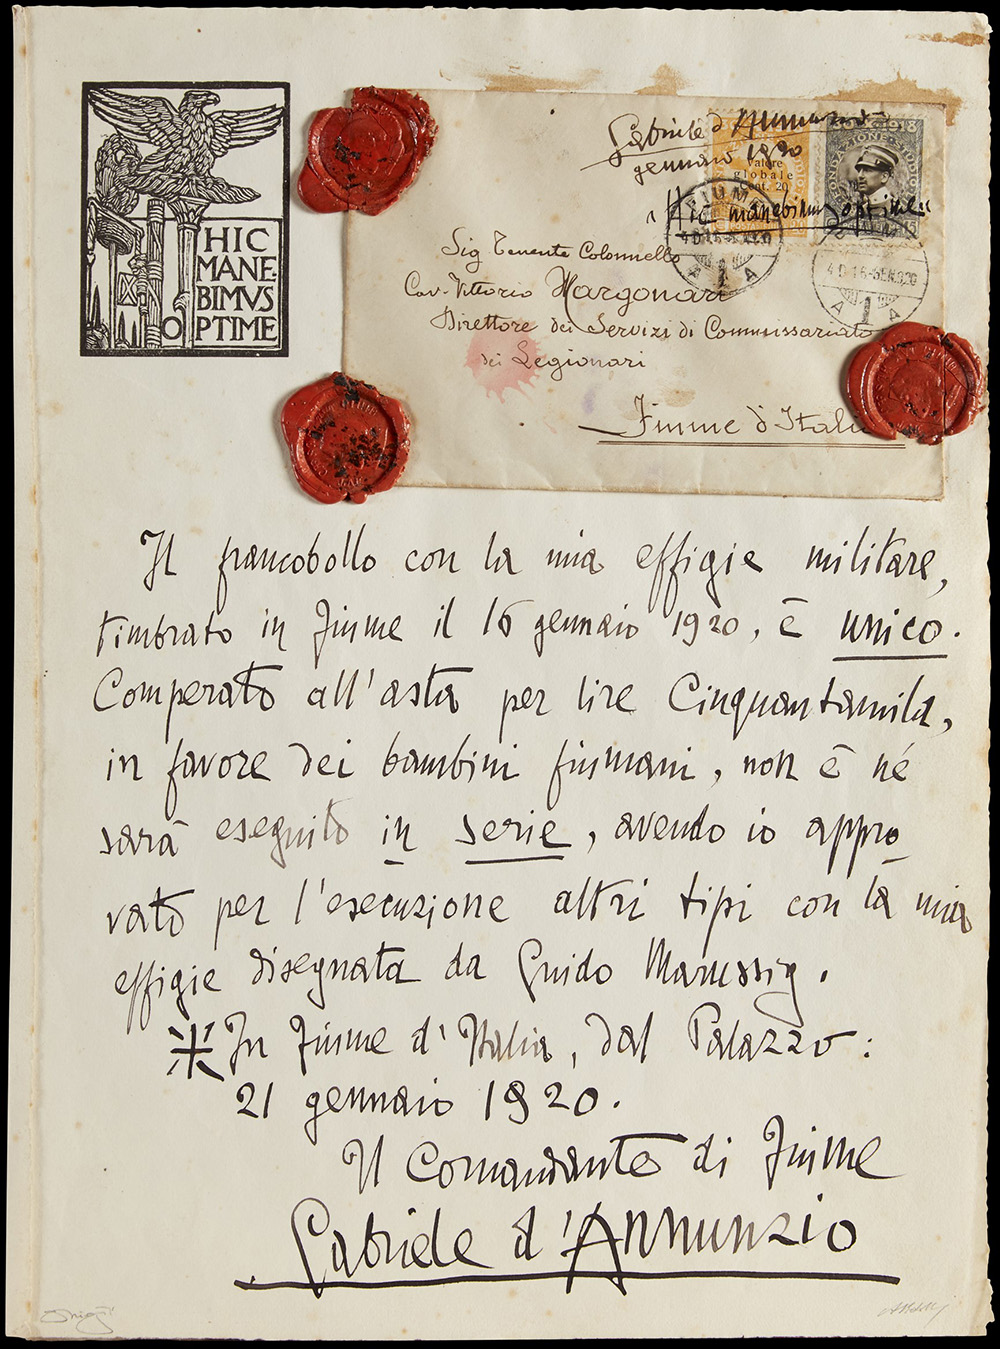 HIC
MANE-
BIMVS
OPTIME
Gabriele d'Annunzio
gennaio 1920
"Hic manebimus optime"
Valore
globale
Cent. 20
1918
FONDAZIONE STUDIO
FIUME
Sig Tenente Colonnello
Cav. Vittorio Margonari
Direttore dei Servizi di Commissariato
dei Legionari
Fiume d'Italia
Il francobollo con la mia effigie militare,
timbrato in Fiume il 16 gennaio 1920, è unico.
Comperato all'asta per lire Cinquantamila,
in favore dei bambini fiumani, non è né
sarà eseguito in serie, avendo io appro
vato per l'esecuzione altri tipi con la mia
effigie disegnata da Guido Marussig.
In Fiume d'Italia, dal Palazzo:
21 gennaio 1920.
Il Comandante di Fiume
Gabriele d'Annunzio